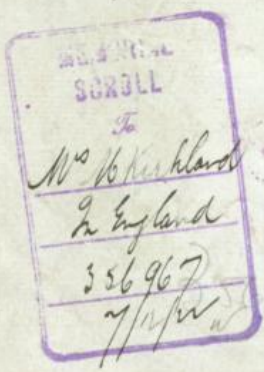 MEMORIAL
SCROLL
To
Mrs Kirkland
In England
356967
7/12/22